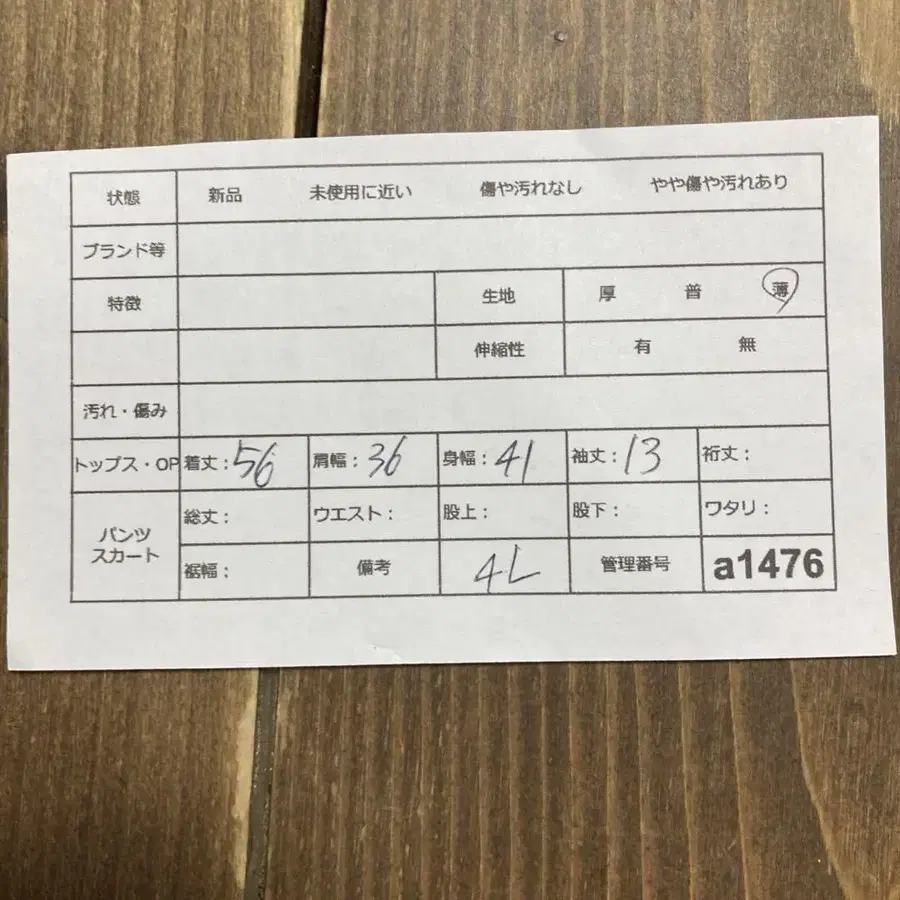 状態 新品 未使用に近い 傷や汚れなし やや傷や汚れあり
ブランド等
特徴 生地 厚 普 薄
伸縮性 有 無
汚れ・傷み
トップス・OP 着丈：56 肩幅：36 身幅：41 袖丈：13 裄丈：
パンツ スカート
総丈： ウエスト： 股上： 股下： ワタリ：
裾幅： 備考 4L 管理番号 a1476